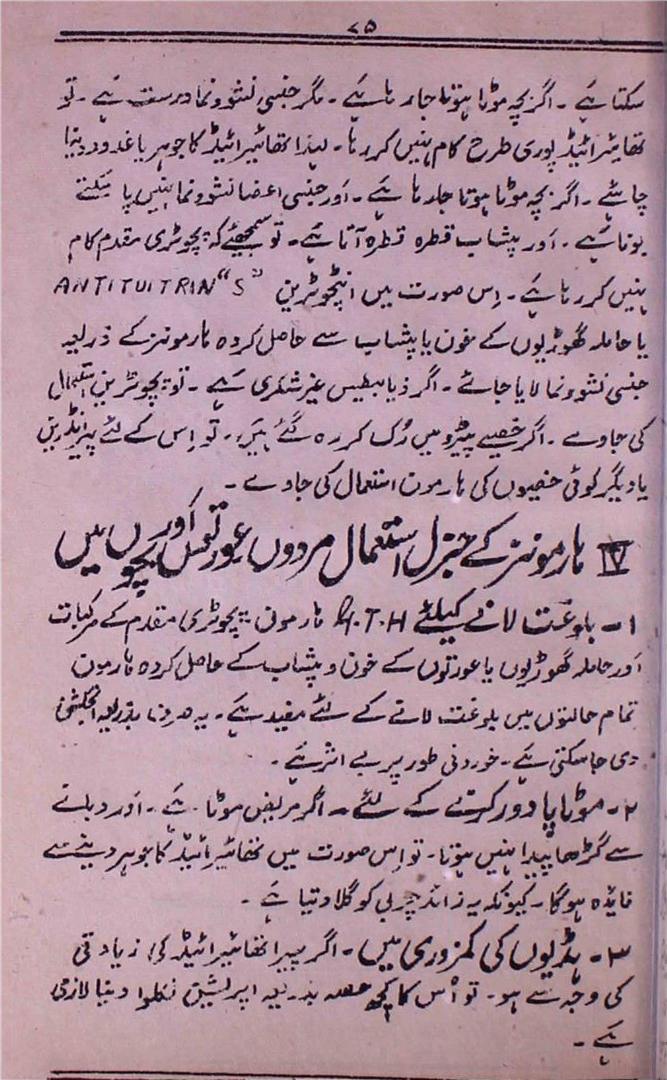 ۷۵
سکتا ہے ۔ اگر بچہ موٹا ہوتا جا رہا ہے ۔ مگر جنسی نشوونما درست ہے ۔ تو
تھائیرائیڈ پوری طرح کام نہیں کر رہا ۔ لہذا تھائیرائیڈ کا جوہر یا غدود دینا
چاہئے ۔ اگر بچہ موٹا ہوتا جا رہا ہے ۔ اور جنسی اعضا نشوونما نہیں پا سکتے
بونا ہے ۔ اور پیشاب قطرہ قطرہ آتا ہے ۔ تو سمجھئے کہ پچوٹری مقدم کام
نہیں کر رہا ہے ۔ اس صورت میں انٹچوٹرین ANTITUITRIN "S"
یا حاملہ گھوڑیوں کے خون یا پیشاب سے حاصل کردہ ہارمونز کے ذریعہ
جنسی نشوونما لایا جائے ۔ اگر ذیابیطیس غیر شکری ہے ۔ تو پچوٹرین استعمال
کی جاوے ۔ اگر خصیے پیڑو میں رُک کر رہ گئے ہیں ۔ تو اِس کے لئے پیرانڈرین
یا دیگر کوئی خصیوں کی ہارمون استعمال کی جاوے ۔
IV ہارمونز کے جنرل استعمال مردوں عورتوں اور بچوں میں
۱ ۔ بلوغت لانے کیلئے P.T.H ہارمون پچوٹری مقدم کے مرکبات
اور حاملہ گھوڑیوں یا عورتوں کے خون و پیشاب کے حاصل کردہ ہارمون
تمام حالتوں میں بلوغت لانے کے لئے مفید ہے ۔ یہ صرف بذریعہ انجکشن
دی جا سکتی ہے ۔ خوردنی طور پر بے اثر ہے ۔
۲ ۔ موٹاپا دور کرنے کے لئے ۔ اگر مریض موٹا ہے ۔ اور دبانے
سے گڑھا پیدا نہیں ہوتا ۔ تو اس صورت میں تھائیرائیڈ کا جوہر دینے سے
فایدہ ہوگا ۔ کیونکہ یہ زائد چربی کو گلا دیتا ہے ۔
۳ ۔ ہڈیوں کی کمزوری میں ۔ اگر پیرا تھائیرائیڈ کی زیادتی
کی وجہ سے ہو ۔ تو اُس کا کچھ حصہ بذریعہ اپریشن نکلوا دینا لازمی
ہے ۔